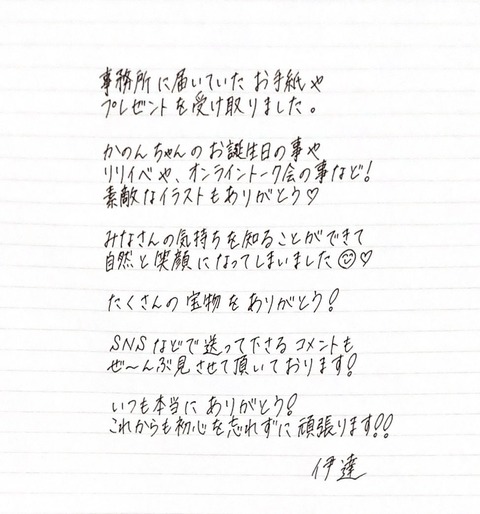 事務所に届いていたお手紙や
プレゼントを受け取りました。
かのんちゃんのお誕生日の事や
リリイベや、オンライントーク会の事など!
素敵なイラストもありがとう♡
みなさんの気持ちを知ることができて
自然と笑顔になってしまいました☺♡
たくさんの宝物をありがとう!
SNSなどで送って下さるコメントも
ぜ〜んぶ見させて頂いております!
いつも本当にありがとう!
これからも初心を忘れずに頑張ります!!
伊達